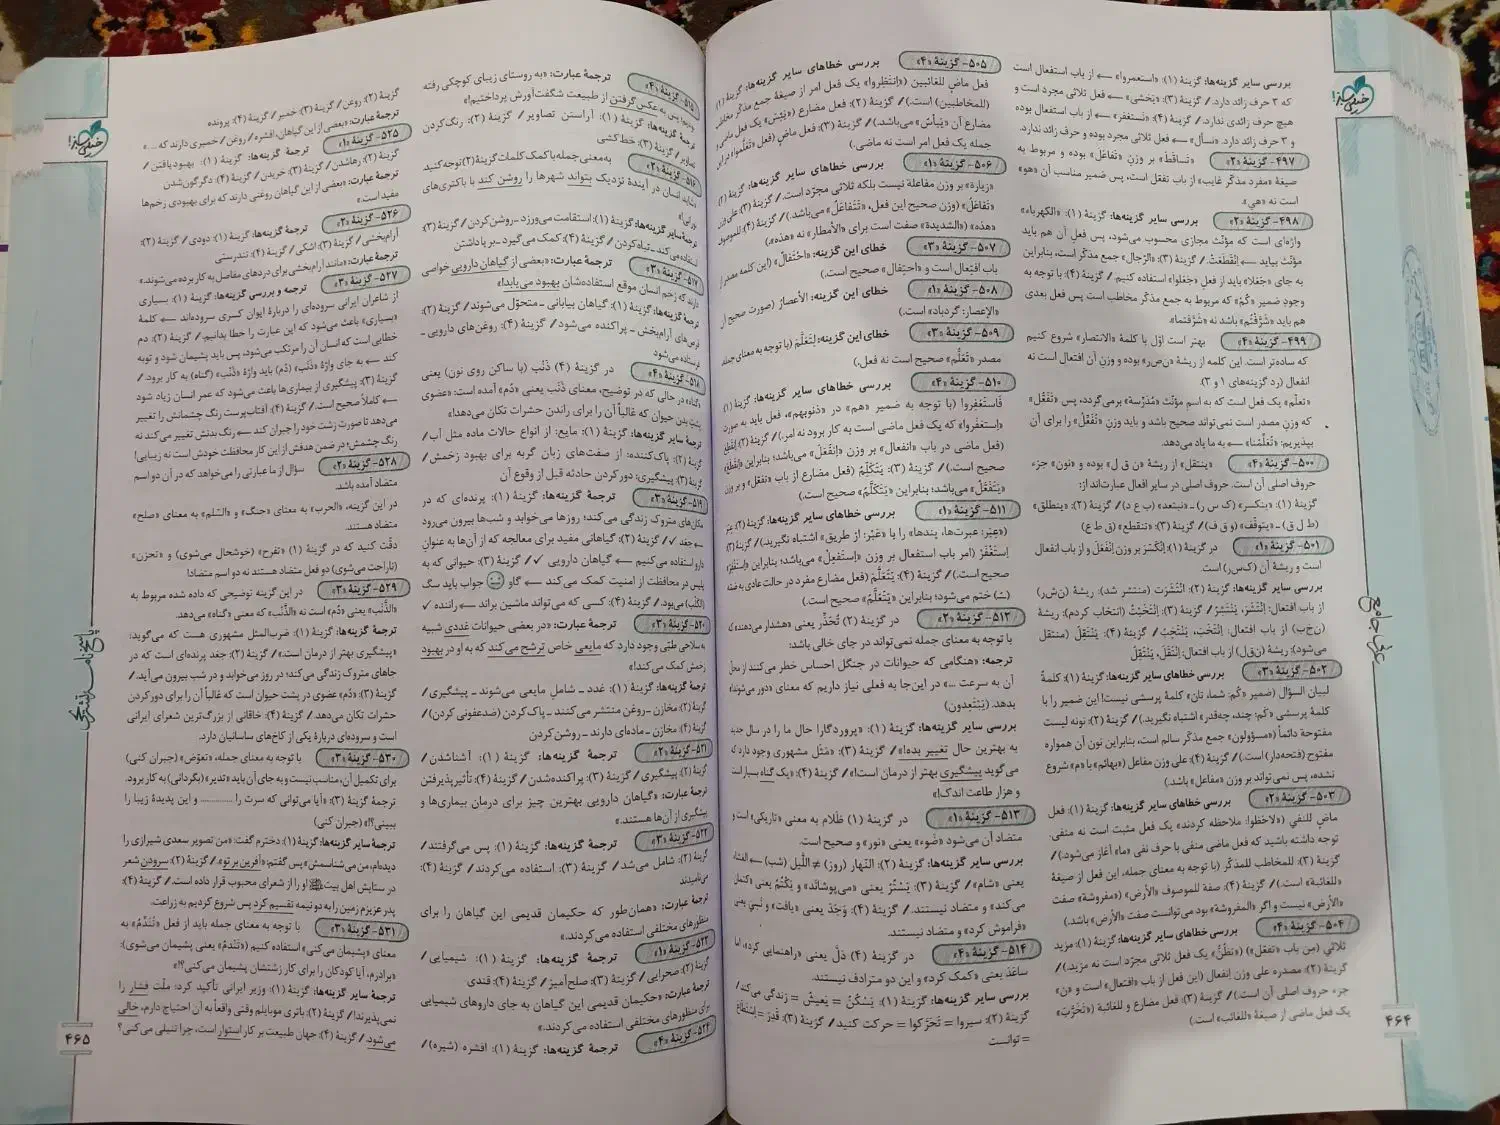 بررسی سایر گزینه‌ها: گزینهٔ (۱): «استعمروا» ← از باب استفعال است
که ۳ حرف زائد دارد. / گزینهٔ (۳): «یَخشی» ← فعل ثلاثی مجرد است و
هیچ حرف زائدی ندارد. / گزینهٔ (۴): «نستغفر» ← از باب استفعال بوده
و ۳ حرف زائد دارد. «نسأل» ← فعل ثلاثی مجرد بوده و حرف زائد ندارد.
۴۹۷- گزینهٔ «۲»
«تساقَطَ» بر وزنِ «تفاعَلَ» بوده و مربوط به
صیغهٔ «مفرد مذکّر غایب» از باب تفعّل است، پس ضمیر مناسب آن «هو»
است نه «هي».
۴۹۸- گزینهٔ «۲»
بررسی سایر گزینه‌ها: گزینهٔ (۱): «الکهرباء»
واژه‌ای است که مؤنّث مجازی محسوب می‌شود، پس فعلِ آن هم باید
مؤنّث بیاید ← اِنْقَطَعَتْ. / گزینهٔ (۳): «الرّجال» جمع مذکّر است، بنابراین
به جای «جَعَلا» باید از فعل «جَعَلوا» استفاده کنیم. / گزینهٔ (۴): با توجه به
وجودِ ضمیر «کُمْ» که مربوط به جمع مذکّر مخاطب است پس فعل بعدی
هم باید «شَرَّفْتُم» باشد نه «شَرَّفتما».
۴۹۹- گزینهٔ «۴»
بهتر است اوّل با کلمهٔ «الانتصار» شروع کنیم
که ساده‌تر است. این کلمه از ریشهٔ «ن‌ص‌ر» بوده و وزنِ آن افتعال است نه
انفعال (رد گزینه‌های ۱ و ۳).
«تعلّم» یک فعل است که به اسم مؤنّث «مُدَرّسة» برمی‌گردد، پس «تَفَعُّل»
که وزنِ مصدر است نمی‌تواند صحیح باشد و باید وزنِ «تُفَعِّلُ» را برای آن
بپذیریم: «تُعَلِّمُنا» ← به ما یاد می‌دهد.
۵۰۰- گزینهٔ «۴»
«ینتقل» از ریشهٔ «ن ق ل» بوده و «نون» جزء
حروف اصلی آن است. حروف اصلی در سایر افعال عبارت‌اند از:
گزینهٔ (۱): «ینکسر» (ک س ر) ـ «نبتعد» (ب ع د) / گزینهٔ (۲): «ینطلق»
(ط ل ق) ـ «یتوقّف» (و ق ف) / گزینهٔ (۳): «تنقطع» (ق ط ع)
۵۰۱- گزینهٔ «۱»
در گزینهٔ (۱): اِنْکَسَرَ بر وزن اِنْفَعَلَ و از باب انفعال
است و ریشهٔ آن (ک‌س‌ر) است.
بررسی سایر گزینه‌ها: گزینهٔ (۲): اِنْتَشَرَت (منتشر شد): ریشهٔ (ن‌ش‌ر)
از باب افتعال: اِنْتَشَرَ، یَنْتَشِرُ / گزینهٔ (۳): اِنْتَخَبْتُ (انتخاب کردم): ریشهٔ
(ن‌خ‌ب) از باب افتعال: اِنْتَخَبَ، یَنْتَخِبُ / گزینهٔ (۴): یَنْتَقِلُ (منتقل
می‌شود): ریشهٔ (ن‌ق‌ل) از باب افتعال: اِنْتَقَلَ، یَنْتَقِلُ
۵۰۲- گزینهٔ «۳»
بررسی خطاهای سایر گزینه‌ها: گزینهٔ (۱): کلمهٔ
لبیان السؤال (ضمیر «کُم: شما، ‌تان» کلمهٔ پرسشی نیست! این ضمیر را با
کلمهٔ پرسشی «کم: چند، چه‌قدر» اشتباه نگیرید.) / گزینهٔ (۲): نونه لیست
مفتوحة دائماً («مسؤولون» جمع مذکّر سالم است، بنابراین نون آن همواره
مفتوح (فتحه‌دار) است.) / گزینهٔ (۴): علی وزن مفاعل («بهائم» با «م» شروع
نشده، پس نمی‌تواند بر وزن «مفاعل» باشد.)
۵۰۳- گزینهٔ «۲»
بررسی خطاهای سایر گزینه‌ها: گزینهٔ (۱): فعل
ماضٍ للنفي («لاحَظوا: ملاحظه کردند» یک فعل مثبت است نه منفی.
توجه داشته باشید که فعل ماضی منفی با حرف نفی «ما» آغاز می‌شود.) /
گزینهٔ (۳): للمخاطب للمذکّر (با توجه به معنای جمله، این فعل از صیغهٔ
«للغائبة» است.) / گزینهٔ (۴): صفة للموصوف «الأرض» («مفروشة» صفت
«الأرض» نیست و اگر «المفروشة» بود می‌توانست صفت «الأرض» باشد.)
۵۰۴- گزینهٔ «۴»
بررسی خطاهای سایر گزینه‌ها: گزینهٔ (۱): مزید
ثلاثي (مِن باب «تفعّل») («تَظُنُّ» یک فعل ثلاثی مجرّد است نه مزید.) /
گزینهٔ (۲): مصدره علی وزن اِنفعال (این فعل از باب «افتعال» است و «ن»
جزء حروف اصلی آن است.) / گزینهٔ (۳): فعل مضارع و للغائبة («تَخَرَّبَ»
یک فعل ماضی از صیغهٔ «للغائب» است.)
عربی جامع
۴۶۴
۵۰۵- گزینهٔ «۴»
بررسی خطاهای سایر گزینه‌ها: گزینهٔ (۱)
فعل ماضٍ للغائبین («اِنتظِروا» یک فعل امر از صیغهٔ جمع مذکّر مخاطب
(للمخاطبین) است.) / گزینهٔ (۲): فعل مضارع («یَئِسَ» یک فعل ماضی
مضارع آن «یَیأسُ» می‌باشد.) / گزینهٔ (۳): فعل ماضٍ (فعل «تَعَلَّموا» در این
جمله یک فعل امر است نه ماضی.)
۵۰۶- گزینهٔ «۱»
بررسی خطاهای سایر گزینه‌ها: گزینهٔ (۲):
«زیارة» بر وزن مفاعلة نیست بلکه ثلاثی مجرّد است. / گزینهٔ (۳): علی وزن
«تَفاعَلَ» (وزن صحیح این فعل، «تَتَفاعَلُ» می‌باشد.) / گزینهٔ (۴): للموصوف
«هذه» («الشدیدة» صفت است برای «الأمطار» نه «هذه».)
۵۰۷- گزینهٔ «۳»
خطای این گزینه: «اختفال» (این کلمه مصدر از
باب افتعال است و «احتِفال» صحیح است.)
۵۰۸- گزینهٔ «۱»
خطای این گزینه: الأعصار (صورت صحیح آن
«الإعصار: گردباد» است.)
۵۰۹- گزینهٔ «۳»
خطای این گزینه: لِتَعلَّمَ (با توجه به معنای جمله
مصدر «تَعَلُّم» صحیح است نه فعل.)
۵۱۰- گزینهٔ «۴»
بررسی خطاهای سایر گزینه‌ها: گزینهٔ (۱)
فَاستَغفِروا (با توجه به ضمیر «هم» در «ذنوبهم»، فعل باید به صورت
«اِستغفَروا» که یک فعل ماضی است به کار برود نه امر.) / گزینهٔ (۲):
(فعل ماضی در باب «انفعال» بر وزن «اِنفَعَلَ» می‌باشد؛ بنابراین «اِنقَطَعَ»
صحیح است.) / گزینهٔ (۳): یَتَکَلِّمُ (فعل مضارع از باب «تفعّل» و بر وزن
«یَتَفَعَّلُ» می‌باشد؛ بنابراین «یَتَکَلَّمُ» صحیح است.)
۵۱۱- گزینهٔ «۱»
بررسی خطاهای سایر گزینه‌ها: گزینهٔ (۲):
(«عِبَر: عبرت‌ها، پندها» را با «عَبْرَ: از طریق» اشتباه نگیرید.) / گزینهٔ (۳):
اِستَغْفَرْ (امر باب استفعال بر وزن «اِستَفعِل» می‌باشد؛ بنابراین «اِستَغْفِرْ»
صحیح است.) / گزینهٔ (۴): یَتَعَلَّمَ (فعل مضارع مفرد در حالت عادی به ضمّه
(ـُ) ختم می‌شود؛ بنابراین «یَتَعَلَّمُ» صحیح است.)
۵۱۲- گزینهٔ «۲»
در گزینهٔ (۲) تُحَذِّر یعنی «هشدار می‌دهد» که
با توجه به معنای جمله نمی‌تواند در جای خالی باشد:
ترجمه: «هنگامی که حیوانات در جنگل احساس خطر می‌کنند از محل
آن به سرعت ...» در این‌جا به فعلی نیاز داریم که معنای «دور می‌شوند»
بدهد. (یَبْتَعِدون)
بررسی سایر گزینه‌ها: گزینهٔ (۱): «پروردگارا حال ما را در سال جدید
به بهترین حال تغییر بده!» / گزینهٔ (۳): «مَثَل مشهوری وجود دارد که
می‌گوید پیشگیری بهتر از درمان است!» / گزینهٔ (۴): «یک گناه بسیار است
و هزار طاعت اندک!»
۵۱۳- گزینهٔ «۱»
در گزینهٔ (۱) ظَلام به معنی «تاریکی» است و
متضاد آن می‌شود «ضَوء» یعنی «نور» و صحیح است.
بررسی سایر گزینه‌ها: گزینهٔ (۲): النّهار (روز) ≠ اللَّیل (شب) ← العَشاء
یعنی «شام» / گزینهٔ (۳): یَسْتُرُ یعنی «می‌پوشاند» و یَکْتُمُ یعنی «کتمان
می‌کند» و متضاد نیستند. / گزینهٔ (۴): وَجَدَ یعنی «یافت» و نَسِيَ یعنی
«فراموش کرد» و متضاد نیستند.
۵۱۴- گزینهٔ «۴»
در گزینهٔ (۴) دَلَّ یعنی «راهنمایی کرد»، اما
ساعَدَ یعنی «کمک کرد» و این دو مترادف نیستند.
بررسی سایر گزینه‌ها: گزینهٔ (۱): یَسْکُنُ = یَعیشُ = زندگی می‌کند /
گزینهٔ (۲): سیروا = تَحَرَّکوا = حرکت کنید / گزینهٔ (۳): قَدَرَ = اِسْتَطاعَ
= توانست
۵۱۵- گزینهٔ «۴»
ترجمهٔ عبارت: «به روستای زیبای کوچکی رفته
بودیم؛ پس به عکس گرفتن از طبیعت شگفت‌آورش پرداختیم!»
ترجمهٔ گزینه‌ها: گزینهٔ (۱): آراستن تصاویر / گزینهٔ (۲): رنگ‌کردن
تصاویر / گزینهٔ (۳): خط‌کشی
۵۱۶- گزینهٔ «۲»
به معنی جمله با کمک کلمات گزینهٔ (۲) توجه کنید
«شاید انسان در آیندهٔ نزدیک بتواند شهرها را روشن کند با باکتری‌های
نورانی!»
ترجمهٔ سایر گزینه‌ها: گزینهٔ (۱): استقامت می‌ورزد ـ روشن‌کردن / گزینهٔ (۳):
استفاده می‌کند ـ تباه‌کردن / گزینهٔ (۴): کمک می‌گیرد ـ برپاداشتن
۵۱۷- گزینهٔ «۳»
ترجمهٔ عبارت: «بعضی از گیاهان دارویی خواصی
دارند که زخم انسان موقع استفاده‌شان بهبود می‌یابد!»
ترجمهٔ گزینه‌ها: گزینهٔ (۱): گیاهان بیابانی ـ متحوّل می‌شوند / گزینهٔ (۲):
قرص‌های آرام‌بخش ـ پراکنده می‌شود / گزینهٔ (۴): روغن‌های دارویی ـ
فرستاده می‌شود
۵۱۸- گزینهٔ «۴»
در گزینهٔ (۴) ذَنْب (با ساکن روی نون) یعنی
«گناه» در حالی که در توضیح، معنای ذَنَب یعنی «دُم» آمده است: «عضوی
پشتِ بدن حیوان که غالباً آن را برای راندن حشرات تکان می‌دهد!»
ترجمهٔ سایر گزینه‌ها: گزینهٔ (۱): مایع: از انواع حالات ماده مثل آب /
گزینهٔ (۲): پاک‌کننده: از صفت‌های زبان گربه برای بهبود زخمش /
گزینهٔ (۳): پیشگیری: دور کردن حادثه قبل از وقوع آن
۵۱۹- گزینهٔ «۳»
ترجمهٔ گزینه‌ها: گزینهٔ (۱): پرنده‌ای که در
مکان‌های متروک زندگی می‌کند؛ روزها می‌خوابد و شب‌ها بیرون می‌رود
← جغد ✓ / گزینهٔ (۲): گیاهانی مفید برای معالجه که از آن‌ها به عنوان
دارو استفاده می‌کنیم ← گیاهان دارویی ✓ / گزینهٔ (۳): حیوانی که به
پلیس در محافظت از امنیت کمک می‌کند ← گاو جواب باید سگ
(الکَلب) می‌بود. / گزینهٔ (۴): کسی که می‌تواند ماشین براند ← راننده ✓
۵۲۰- گزینهٔ «۳»
ترجمهٔ عبارت: «در بعضی حیوانات غددی شبیه
به سلاحی طبّی وجود دارد که مایعی خاص ترشح می‌کند که به او در بهبود
زخمش کمک می‌کند!»
ترجمهٔ گزینه‌ها: گزینهٔ (۱): غدد ـ شامل مایعی می‌شوند ـ پیشگیری /
گزینهٔ (۲): مخازن ـ روغن منتشر می‌کنند ـ پاک‌کردن (ضدعفونی کردن) /
گزینهٔ (۴): مخازن ـ ماده‌ای دارند ـ روشن‌کردن
۵۲۱- گزینهٔ «۲»
ترجمهٔ گزینه‌ها: گزینهٔ (۱): آشناشدن /
گزینهٔ (۲): پیشگیری / گزینهٔ (۳): پراکنده‌شدن / گزینهٔ (۴): تأثیرپذیرفتن
ترجمهٔ عبارت: «گیاهان دارویی بهترین چیز برای درمان بیماری‌ها و
پیشگیری از آن‌ها هستند.»
۵۲۲- گزینهٔ «۳»
ترجمهٔ گزینه‌ها: گزینهٔ (۱): پس می‌گرفتند /
گزینهٔ (۲): شامل می‌شد / گزینهٔ (۳): استفاده می‌کردند / گزینهٔ (۴):
می‌نامیدند
ترجمهٔ عبارت: «همان‌طور که حکیمان قدیمی این گیاهان را برای
منظورهای مختلفی استفاده می‌کردند.»
۵۲۳- گزینهٔ «۱»
ترجمهٔ گزینه‌ها: گزینهٔ (۱): شیمیایی /
گزینهٔ (۲): صحرایی / گزینهٔ (۳): صلح‌آمیز / گزینهٔ (۴): قندی
ترجمهٔ عبارت: «حکیمان قدیمی این گیاهان به جای داروهای شیمیایی
برای منظورهای مختلفی استفاده می‌کردند.»
۵۲۴- گزینهٔ «۴»
ترجمهٔ گزینه‌ها: گزینهٔ (۱): افشره (شیره) /
گزینهٔ (۲): روغن / گزینهٔ (۳): خمیر / گزینهٔ (۴): پرونده
ترجمهٔ عبارت: «بعضی از این گیاهان، افشره / روغن / خمیری دارند که ...»
۵۲۵- گزینهٔ «۱»
ترجمهٔ گزینه‌ها: گزینهٔ (۱): بهبود یافتن /
گزینهٔ (۲): رهاشدن / گزینهٔ (۳): خریدن / گزینهٔ (۴): دگرگون‌شدن
ترجمهٔ عبارت: «بعضی از این گیاهان روغنی دارند که برای بهبودی زخم‌ها
مفید است.»
۵۲۶- گزینهٔ «۲»
ترجمهٔ گزینه‌ها: گزینهٔ (۱): دودی / گزینهٔ (۲):
آرام‌بخشی / گزینهٔ (۳): اشکی / گزینهٔ (۴): تندرستی
ترجمهٔ عبارت: «مانند آرام‌بخشی برای دردهای مفاصل به کار برده می‌شوند.»
۵۲۷- گزینهٔ «۳»
ترجمه و بررسی گزینه‌ها: گزینهٔ (۱): بسیاری
از شاعران ایرانی سروده‌ای را دربارهٔ ایوان کسری سروده‌اند ← کلمهٔ
«بسیاری» باعث می‌شود که این عبارت را خطا بدانیم. / گزینهٔ (۲): دم
خطایی است که انسان آن را مرتکب می‌شود، پس باید پشیمان شود و توبه
کند ← به جای واژهٔ «ذَنَب» (دُم) باید واژهٔ «ذَنْب» (گناه) به کار برود. /
گزینهٔ (۳): پیشگیری از بیماری‌ها باعث می‌شود که عمر انسان زیاد شود
← کاملاً صحیح است. / گزینهٔ (۴): آفتاب‌پرست رنگ چشمانش را تغییر
می‌دهد تا صورت زشت خود را جبران کند ← رنگ بدنش تغییر می‌کند نه
رنگ چشمش؛ در ضمن هدفش از این کار محافظت خودش است نه زیبایی!
۵۲۸- گزینهٔ «۲»
سؤال از ما عبارتی را می‌خواهد که در آن دو اسم
متضاد آمده باشد.
در این گزینه، «الحرب» به معنای «جنگ» و «السّلم» به معنای «صلح»
متضاد هستند.
دقّت کنید که در گزینهٔ (۱) «تفرح» (خوشحال می‌شوی) و «تحزن»
(ناراحت می‌شوی) دو فعل متضاد هستند نه دو اسم متضاد!
۵۲۹- گزینهٔ «۳»
در این گزینه توضیحی که داده شده مربوط به
«الذَّنَب» یعنی «دُم» است نه «الذَّنْب» که معنی «گناه» می‌دهد.
ترجمهٔ گزینه‌ها: گزینهٔ (۱): ضرب‌المثل مشهوری هست که می‌گوید:
«پیشگیری بهتر از درمان است.» / گزینهٔ (۲): جغد پرنده‌ای است که در
جاهای متروک زندگی می‌کند؛ در روز می‌خوابد و در شب بیرون می‌آید. /
گزینهٔ (۳): «دُم» عضوی در پشت حیوان است که غالباً آن را برای دورکردن
حشرات تکان می‌دهد. / گزینهٔ (۴): خاقانی از بزرگ‌ترین شعرای ایرانی
است و سروده‌ای دربارهٔ یکی از کاخ‌های ساسانیان دارد.
۵۳۰- گزینهٔ «۳»
با توجه به معنای جمله، «تعوّض» (جبران کنی)
برای تکمیل آن، مناسب نیست و به جای آن باید «تدیر» (بگردانی) به کار برود.
ترجمهٔ گزینهٔ (۳): «آیا می‌توانی که سرت را ............ و این پدیدهٔ زیبا را
ببینی؟!» (جبران کنی)
ترجمهٔ سایر گزینه‌ها: گزینهٔ (۱): دخترم گفت: «من تصویر سعدی شیرازی را
دیده‌ام، من می‌شناسمش» پس گفتم: «آفرین بر تو». / گزینهٔ (۲): سرودن شعر
در ستایش اهل بیت او را از شعرای محبوب قرار داده است. / گزینهٔ (۴):
پدر عزیزم زمین را به دو نیمه تقسیم کرد پس شروع کردیم به زراعت.
۵۳۱- گزینهٔ «۳»
با توجه به معنای جمله باید از فعل «تُنَدِّمُ» به
معنای «پشیمان می‌کنی» استفاده کنیم («تَندَمُ» یعنی پشیمان می‌شوی):
«برادرم، آیا کودکان را برای کار زشتشان پشیمان می‌کنی؟!»
ترجمهٔ سایر گزینه‌ها: گزینهٔ (۱): وزیر ایرانی تأکید کرد: ملّت فشار را
نمی‌پذیرند! / گزینهٔ (۲): باتری موبایلم وقتی واقعاً به آن احتیاج دارم، خالی
می‌شود. / گزینهٔ (۴): جهان طبیعت بر کار استوار است، چرا تنبلی می‌کنی؟
پاسخ‌نامه تشریحی
۴۶۵